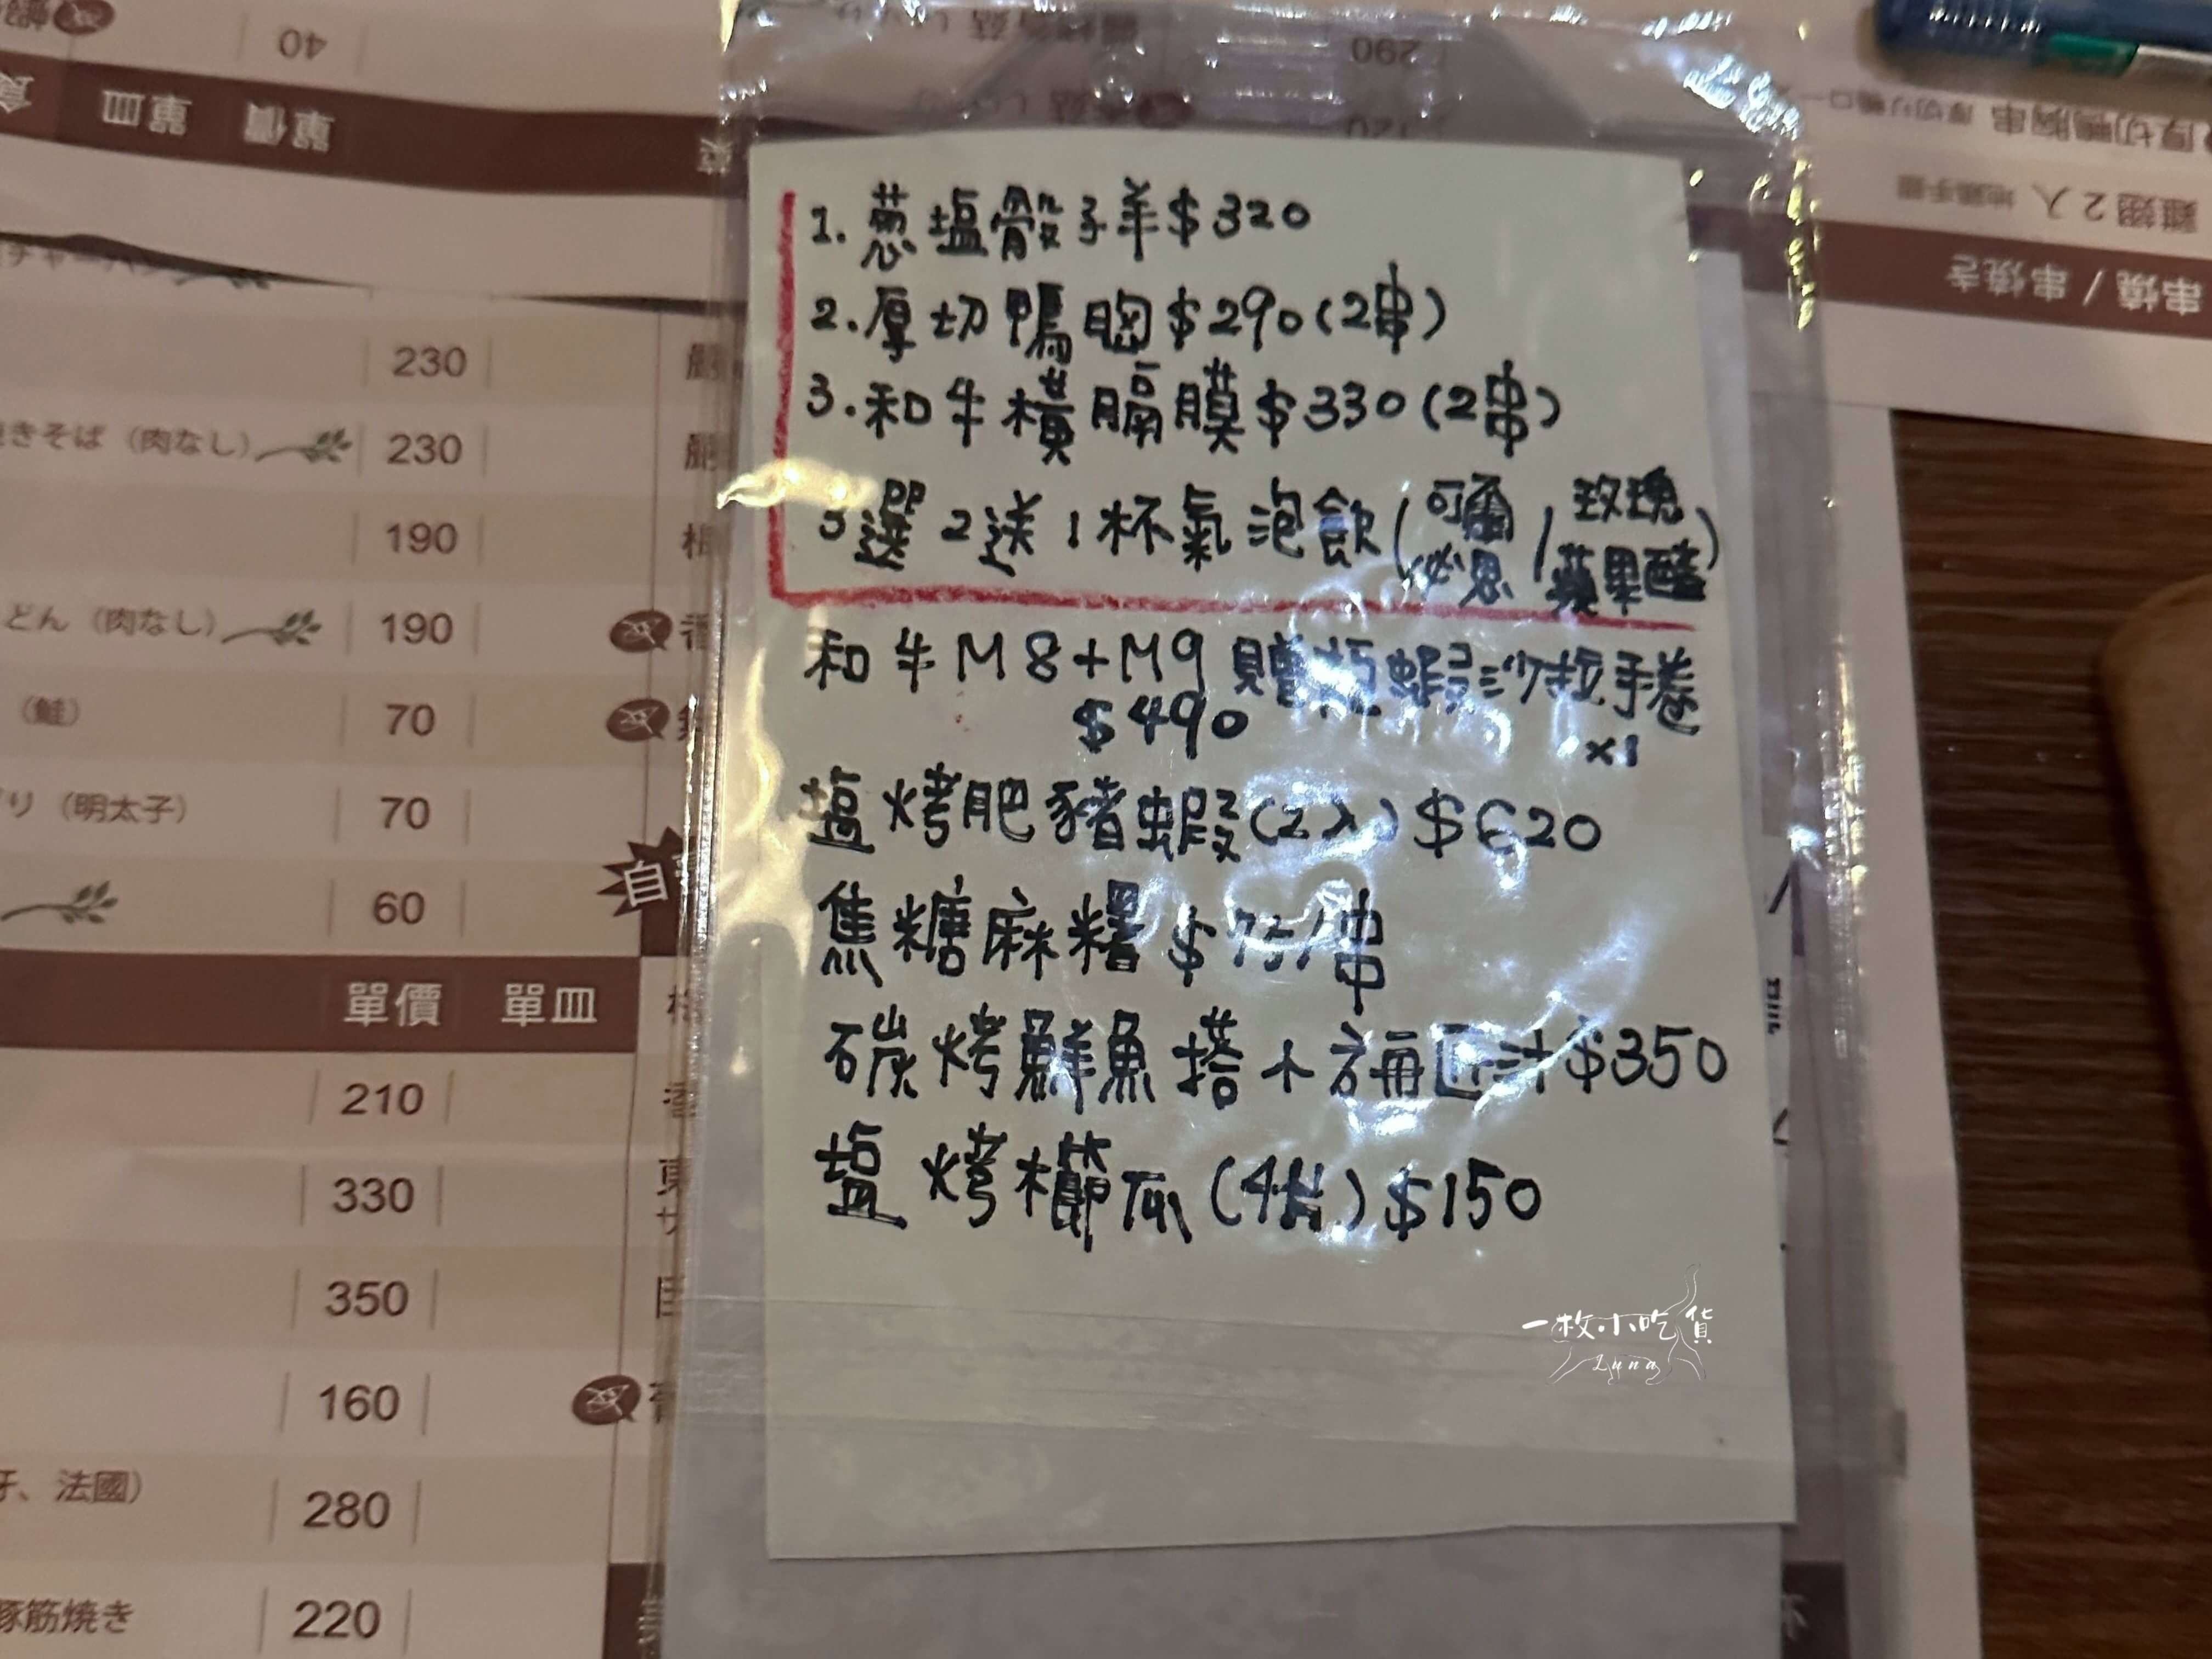 1. 蔥塩骰子羊$320
2. 厚切鴨胸$290(2串)
3. 和牛橫膈膜$330(2串)
3選2送1杯氣泡飲(可爾必思/玫瑰蘋果醋)
和牛M8+M9 贈 蝦 沙拉手卷
$490 x1
塩烤肥豬蝦(2入)$620
焦糖麻糬$75/串
碳烤鮮魚搭 醬汁$350
塩烤櫛瓜(4片)$150
一枚小吃貨
Luna
40
單價 單皿
290
120
厚切鴨胸串
雞翅2入
串燒 / 串焼き
230
きそば（肉なし） 230
190
どん（肉なし） 190
（鮭） 70
り（明太子） 70
60
單價 單皿
210
330
350
160
牙、法國） 280
豚筋焼き 220